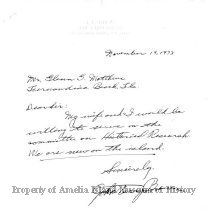 November 19, 1973
Mr. Glenn T. Matthew
Fernandina Beach, Fla.
Dear Sir:
My wife and I would be
willing to serve on the
committee on Historical Research
We are new on the island.
Sincerely,
Property of Amelia Island Museum of History